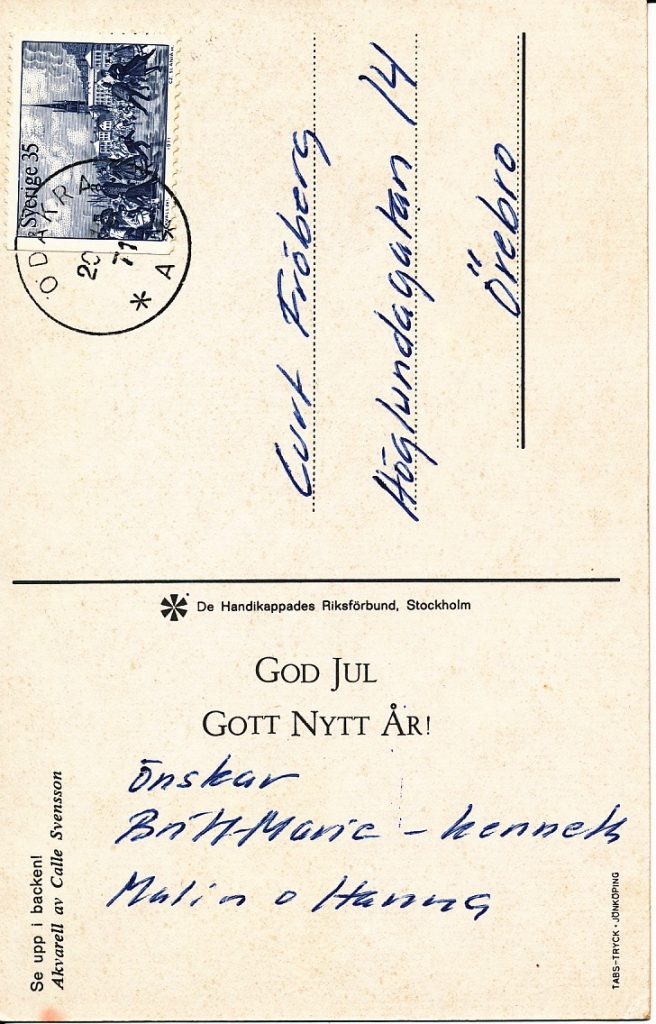 Sverige 35
ÖDÅKRA
A
71
Curt Fröberg
Höglundagatan 14
Örebro
De Handikappades Riksförbund, Stockholm
GOD JUL
GOTT NYTT ÅR!
önskar
Britt-Marie – Kenneth
Malin o Hanna
Se upp i backen!
Akvarell av Calle Svensson
TABS-TRYCK · JÖNKÖPING